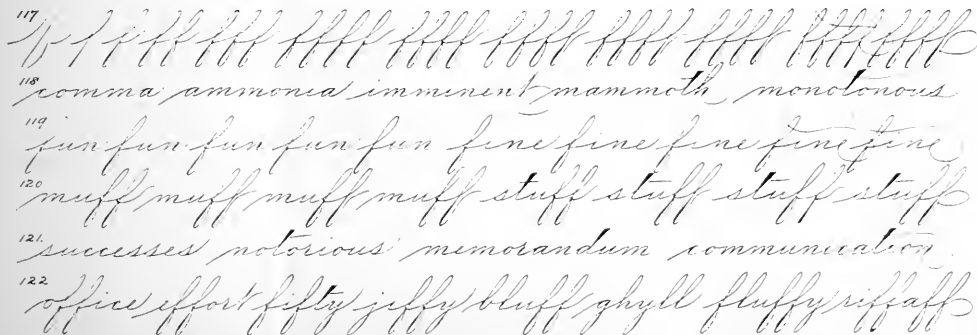 117 ff fff ffff ffff ffff ffff ffff ffff ffff
118 comma ammonia imminent mammoth monotonous
119 fun fun fun fun fun fine fine fine fine fine
120 muff muff muff muff stuff stuff stuff stuff
121. successes notorious memorandum communication
122 office effort fifty jiffy bluff ghyll fluffy riffaff